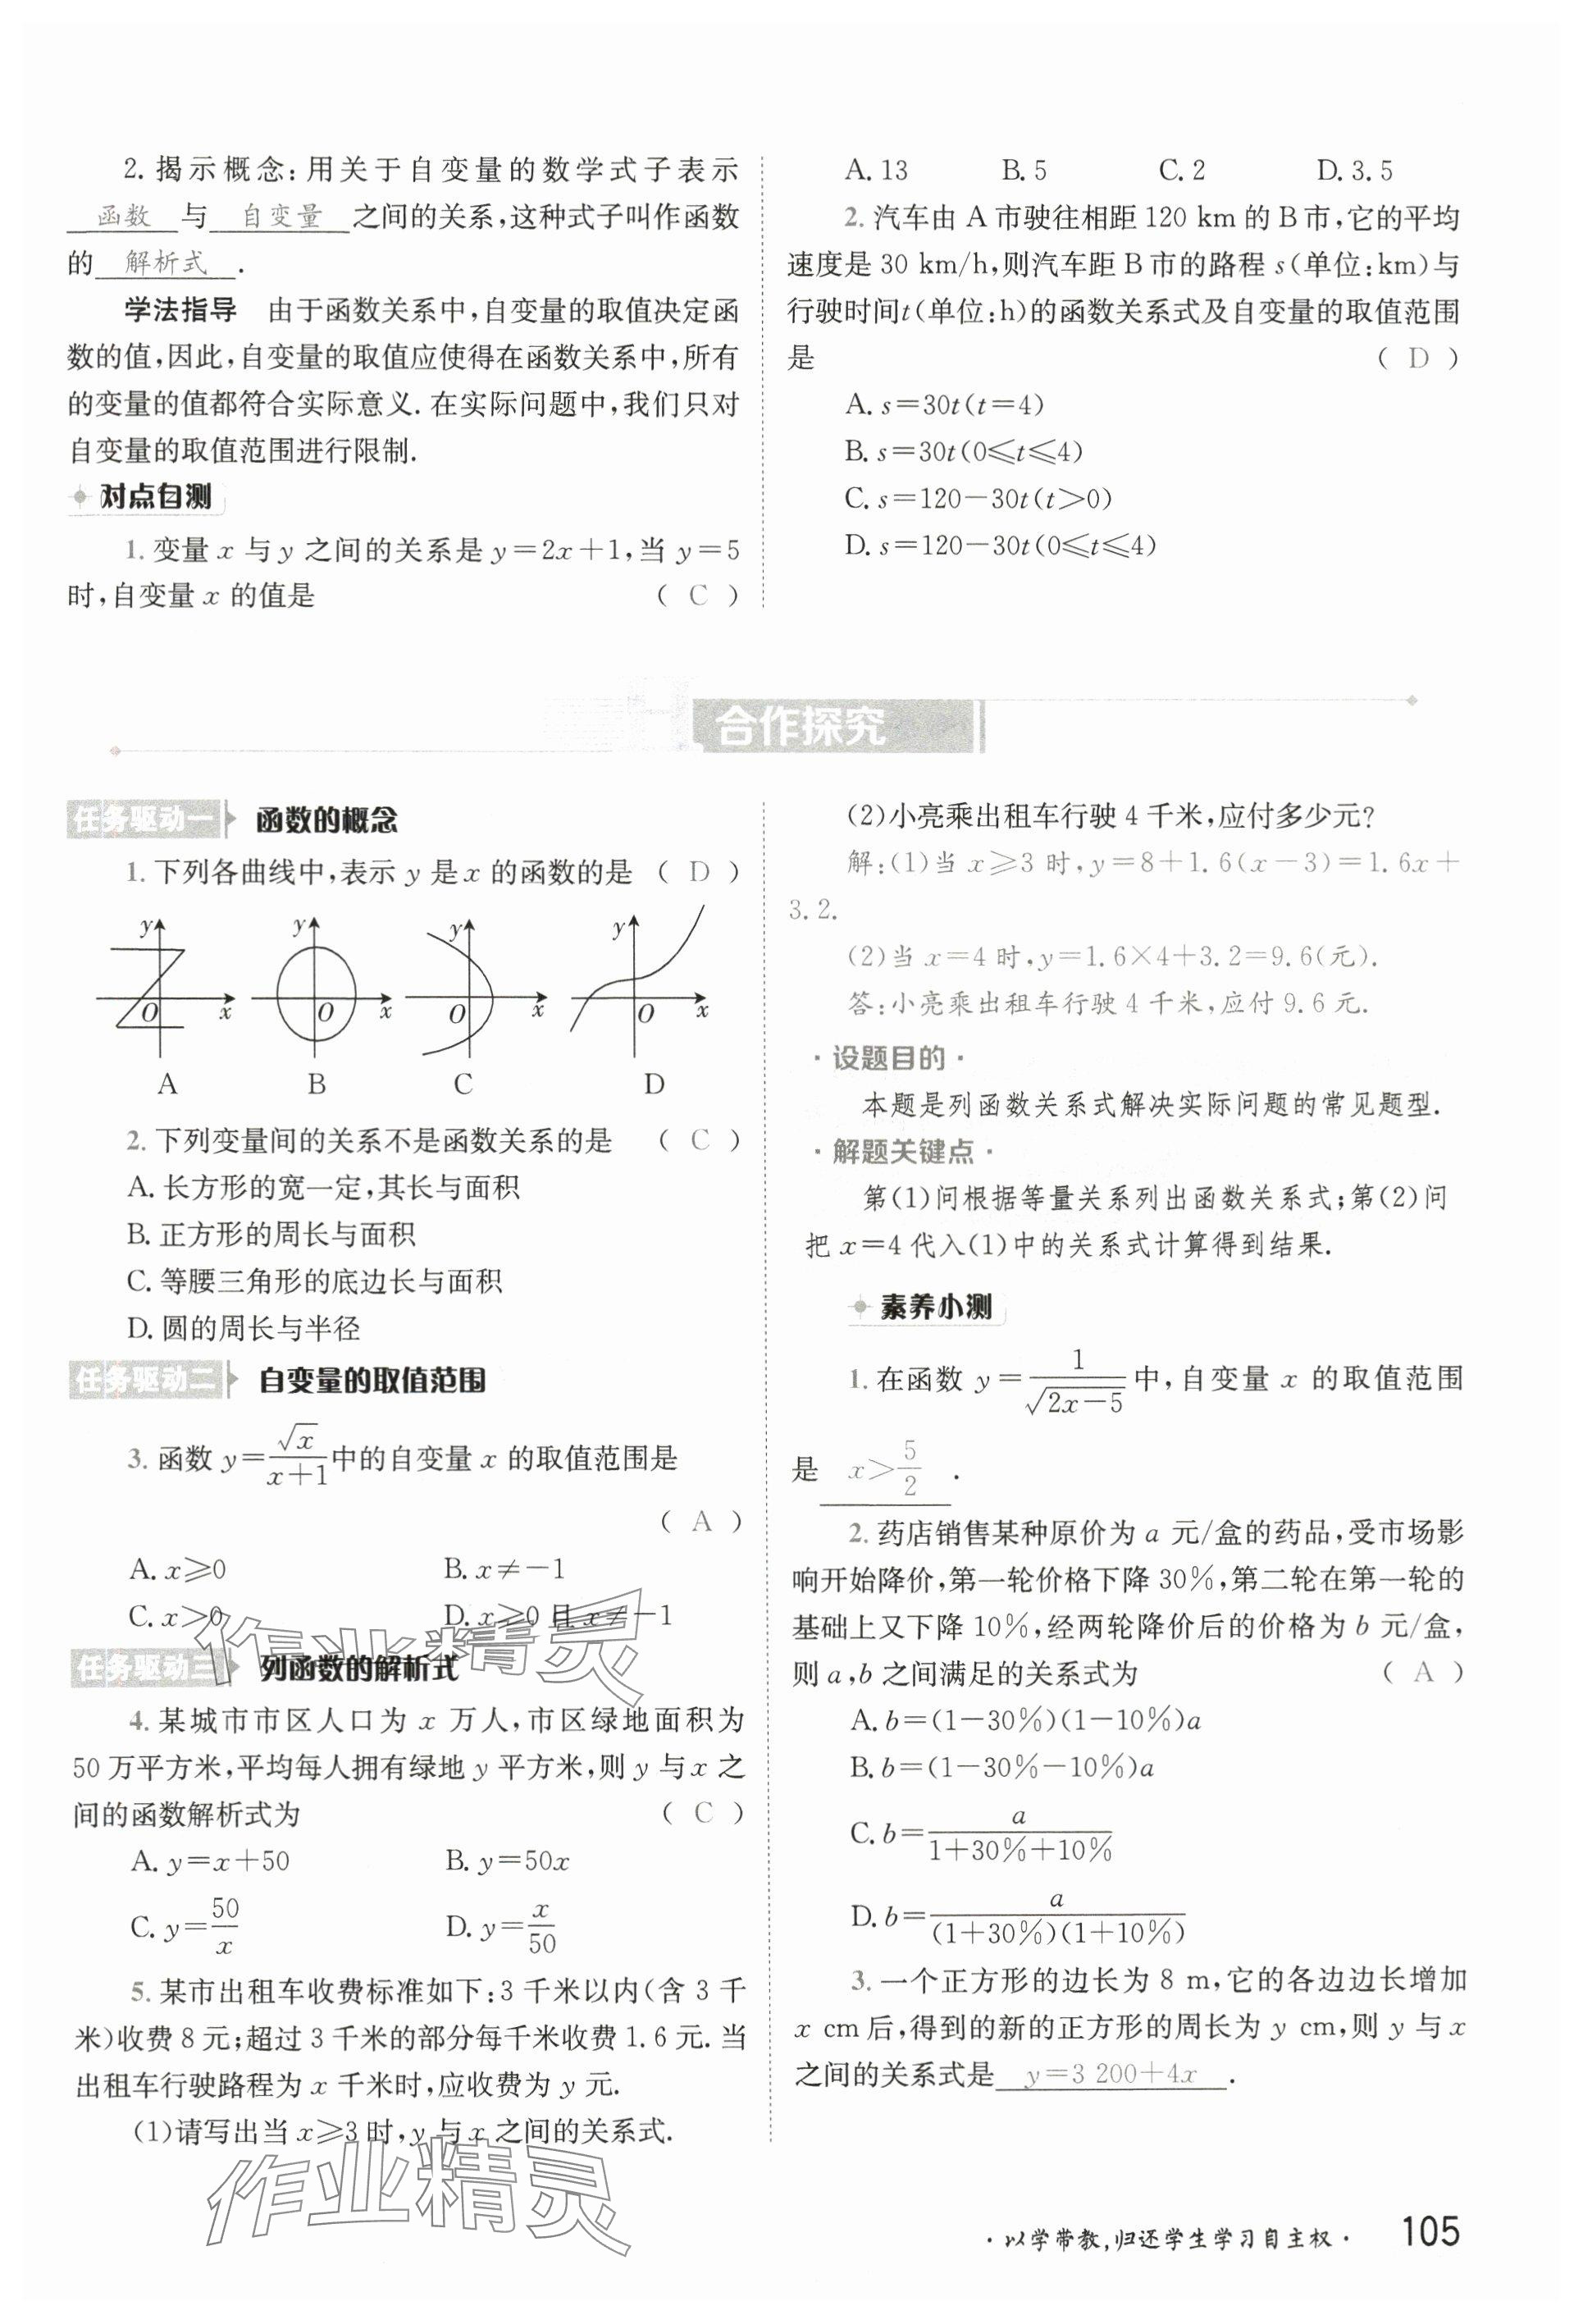 2. 揭示概念:用关于自变量的数学式子表示
函数 与 自变量 之间的关系,这种式子叫作函数
的 解析式 .
学法指导 由于函数关系中,自变量的取值决定函
数的值,因此,自变量的取值应使得在函数关系中,所有
的变量的值都符合实际意义. 在实际问题中,我们只对
自变量的取值范围进行限制.
对点自测
1. 变量 x 与 y 之间的关系是 y=2x+1,当 y=5
时,自变量 x 的值是 ( C )
A. 13 B. 5 C. 2 D. 3. 5
2. 汽车由 A 市驶往相距 120 km 的 B 市,它的平均
速度是 30 km/h,则汽车距 B 市的路程 s(单位:km)与
行驶时间t(单位:h)的函数关系式及自变量的取值范围
是 ( D )
A. s=30t(t=4)
B. s=30t(0⩽t⩽4)
C. s=120-30t(t>0)
D. s=120-30t(0⩽t⩽4)
合作探究
任务驱动一 函数的概念
1. 下列各曲线中,表示 y 是 x 的函数的是 ( D )
y O x y O x y O x y O x
A B C D
2. 下列变量间的关系不是函数关系的是 ( C )
A. 长方形的宽一定,其长与面积
B. 正方形的周长与面积
C. 等腰三角形的底边长与面积
D. 圆的周长与半径
任务驱动二 自变量的取值范围
3. 函数 y=√x/(x+1) 中的自变量 x 的取值范围是
( A )
A. x⩾0 B. x≠-1
C. x>0 D. x⩾0 且 x≠-1
任务驱动三 列函数的解析式
4. 某城市市区人口为 x 万人,市区绿地面积为
50 万平方米,平均每人拥有绿地 y 平方米,则 y 与 x 之
间的函数解析式为 ( C )
A. y=x+50 B. y=50x
C. y=50/x D. y=x/50
5. 某市出租车收费标准如下:3 千米以内(含 3 千
米)收费 8 元;超过 3 千米的部分每千米收费 1. 6 元. 当
出租车行驶路程为 x 千米时,应收费为 y 元.
(1)请写出当 x⩾3 时,y 与 x 之间的关系式.
(2)小亮乘出租车行驶 4 千米,应付多少元?
解:(1)当 x⩾3 时,y=8+1. 6(x-3)=1. 6x+
3. 2.
(2)当 x=4 时,y=1. 6×4+3. 2=9. 6(元).
答:小亮乘出租车行驶 4 千米,应付 9. 6 元.
· 设题目的 ·
本题是列函数关系式解决实际问题的常见题型.
· 解题关键点 ·
第(1)问根据等量关系列出函数关系式;第(2)问
把 x=4 代入(1)中的关系式计算得到结果.
素养小测
1. 在函数 y=1/√(2x-5) 中,自变量 x 的取值范围
是 x>5/2 .
2. 药店销售某种原价为 a 元/盒的药品,受市场影
响开始降价,第一轮价格下降 30%,第二轮在第一轮的
基础上又下降 10%,经两轮降价后的价格为 b 元/盒,
则 a,b 之间满足的关系式为 ( A )
A. b=(1-30%)(1-10%)a
B. b=(1-30%-10%)a
C. b=a/(1+30%+10%)
D. b=a/((1+30%)(1+10%))
3. 一个正方形的边长为 8 m,它的各边边长增加
x cm 后,得到的新的正方形的周长为 y cm,则 y 与 x
之间的关系式是 y=3 200+4x .
作业精灵
作业精灵
· 以学带教,归还学生学习自主权 · 105